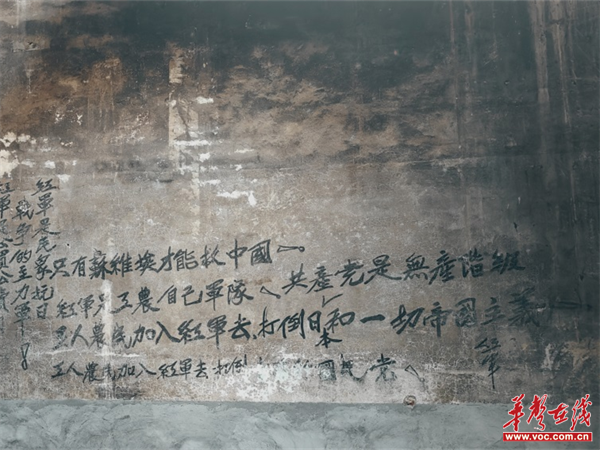 只有蘇維埃才能救中國
紅軍是工農自己軍隊
共產党是無產階級
工人農民加入紅軍去打倒日本和一切帝國主義
紅軍
工人農民加入紅軍去打倒 國民党
紅軍是抗日
戰爭的主力軍
紅軍
華聲在线
www.voc.com.cn